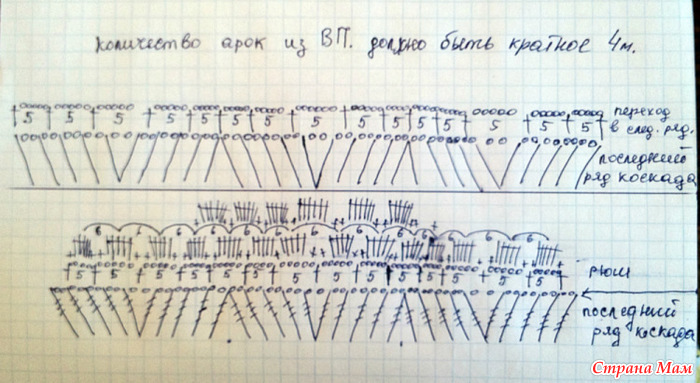 количество арок из ВП. должно быть кратное 4м.
5 5 5 5 5 5 5 5 5 5 5 5 5 5 5 5
переход
в след. ряд.
последний
ряд коскада
6 6 6 6 6 6 6 6 6 6 6 6
5 5 5 5 5 5 5 5 5 5 5 5 5 5 5
рюши
последний
ряд коскада
Страна Мам